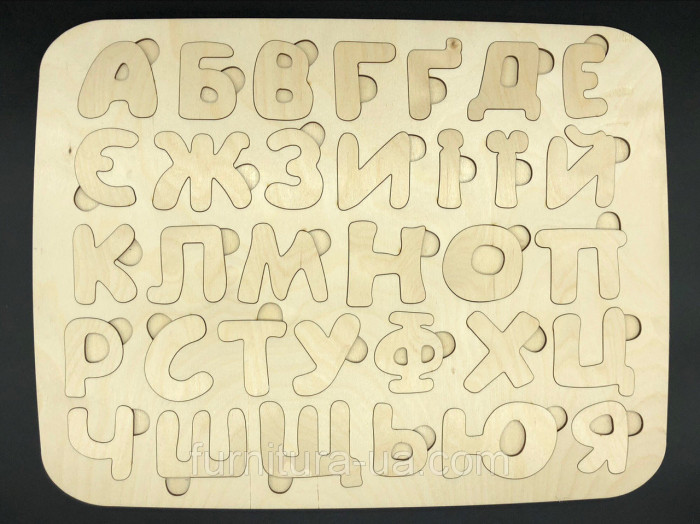 А Б В Г Ґ Д Е
Є Ж З И І Ї Й
К Л М Н О П
Р С Т У Ф Х Ц
Ч Ш Щ Ь Ю Я
furnitura-ua.com